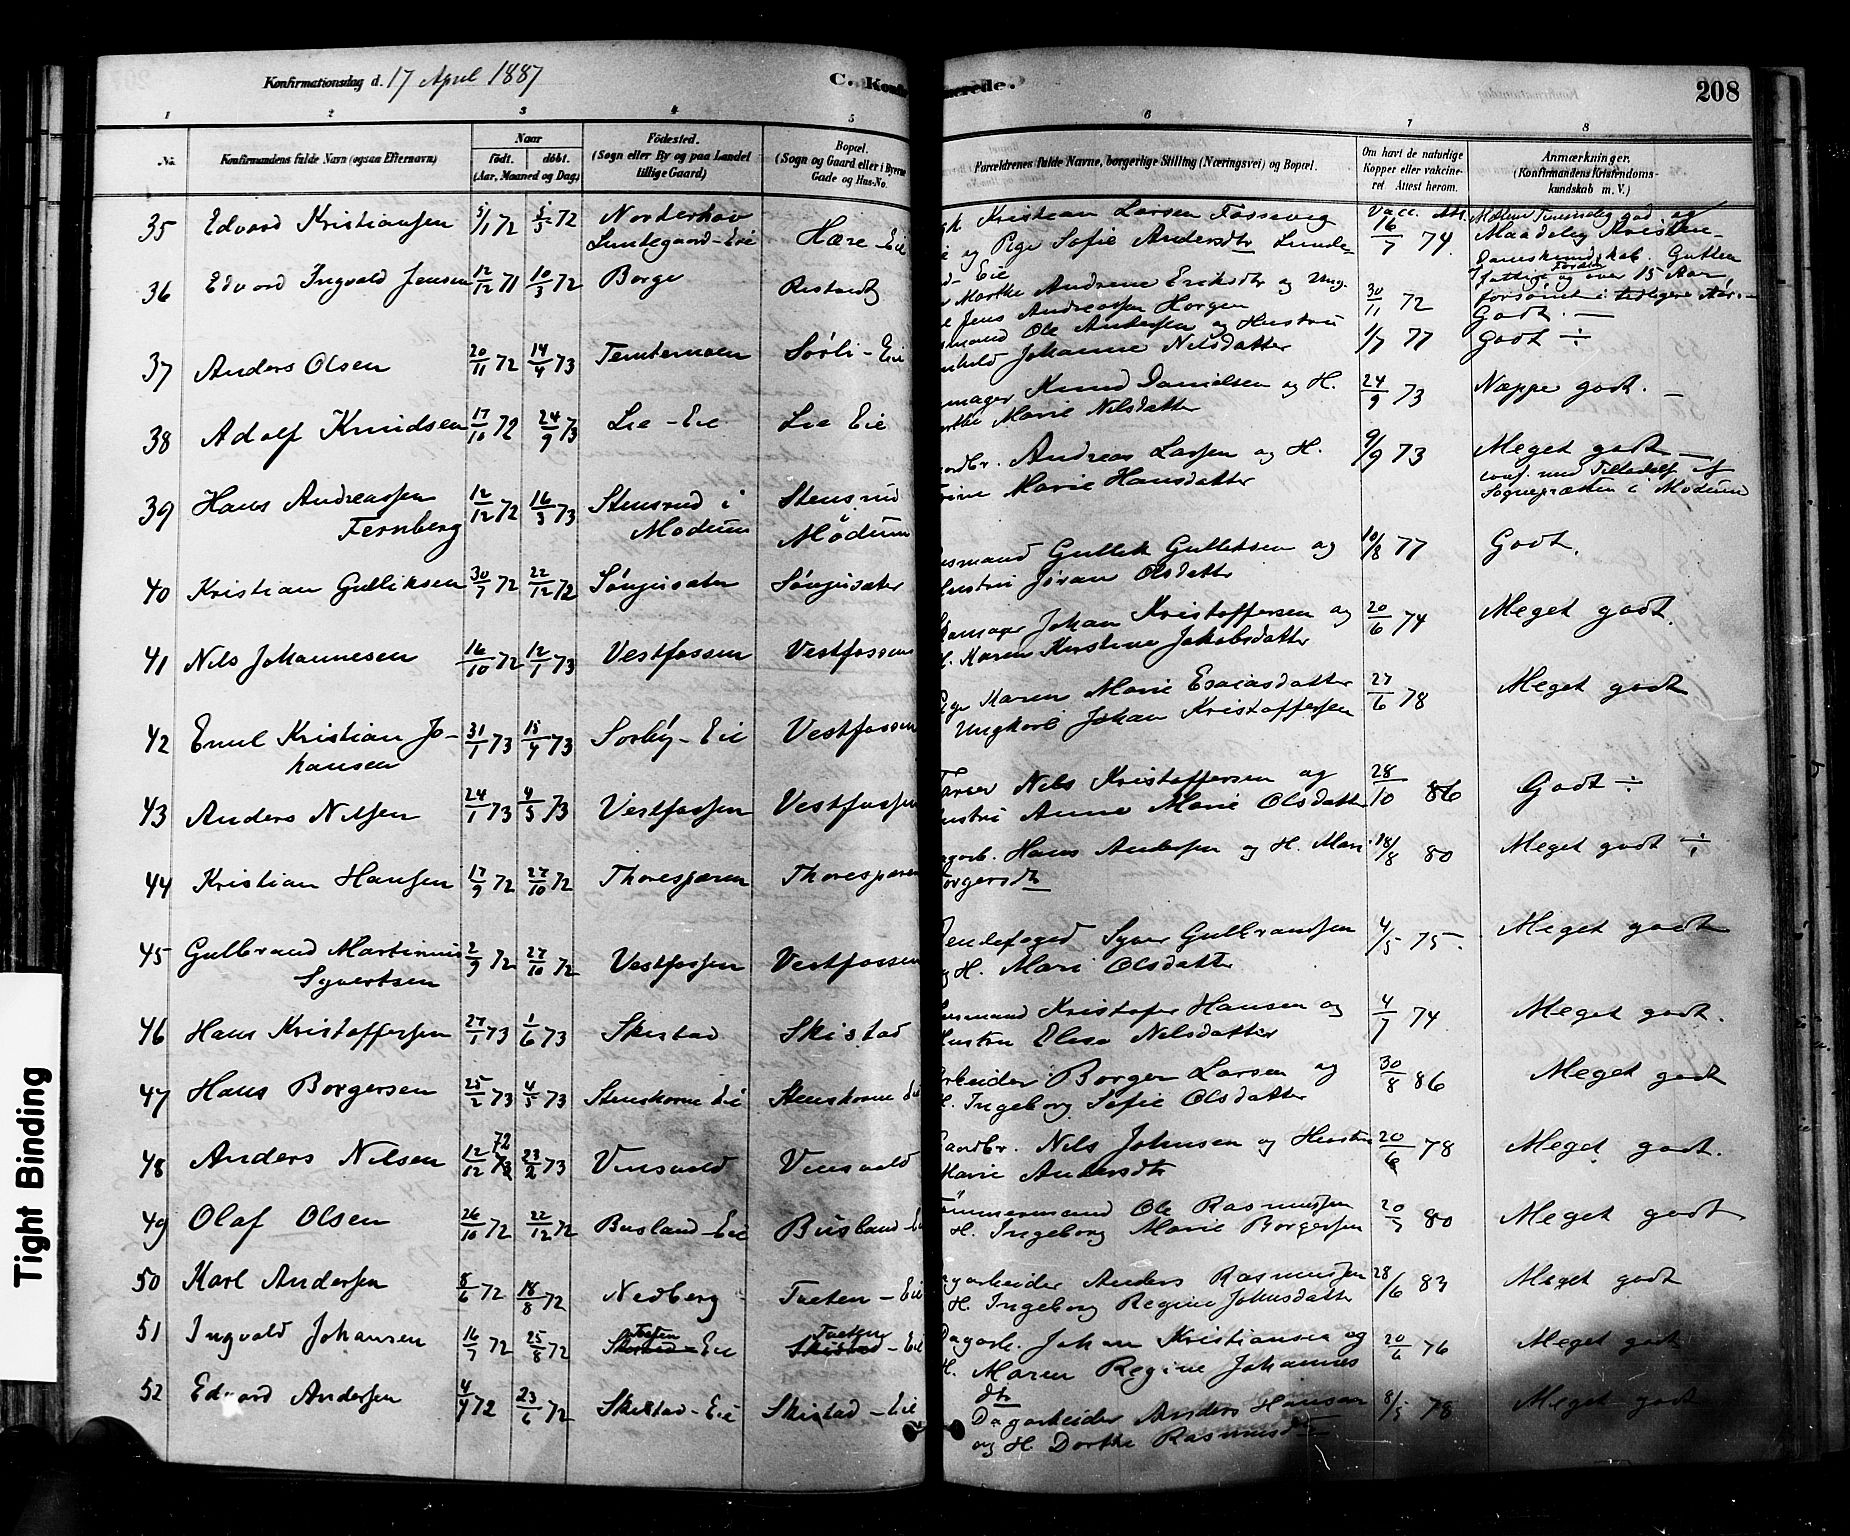 Konfirmationsdag d. 17 April 1887
C. Konfir
merede.
208
1 2 3 4 5 6 7 8
No. Konfirmandens fulde Navn (ogsaa Efternavn) Naar født. døbt. (Aar, Maaned og Dag) Fødested. (Sogn eller By og paa Landet tillige Gaard) Bopæl. (Sogn og Gaard eller i Byerne Gade og Hus-No. Forældrenes fulde Navne, borgerlige Stilling (Næringsvei) og Bopæl. Om havt de naturlige Kopper eller vakcineret. Attest herom. Anmærkninger. (Konfirmandens Kristendomskundskab m. V.)
35 Edvard Kristiansen 5/1 72 5/5 72 Norderhov Hære-Eie Kristian Larsen Fossevig Vacc. Att. 16/7 74
Lundegaard-Eie og Pige Sofie Andersdtr Lunde- Eie
36 Edvard Ingvald Jensen 12/12 71 10/3 72 Borge Marthe Andrine Eriksdtr og Ung. Jens Andreassen Horgen 30/11 72 Godt. —
37 Anders Olsen 20/11 72 14/4 73 Temtemoen Sørli-Eie Ole Andersen og Hustru 1/7 77 Godt ÷
Johanne Nilsdatter
38 Adolf Knudsen 17/10 72 24/9 73 Lie-Eie Lie Eie Knud Danielsen og H. 24/9 73 Nøppe godt. —
Marie Nilsdatter
39 Hans Andreassen 12/12 72 16/3 73 Stensrud i Stensrud Andreas Larsen og H. 9/9 73 Meget godt —
Fernberg Modum Modum Marie Hansdatter conf. med Tilladelse af Sognepræsten i Modum
40 Kristian Gulliksen 30/7 72 22/12 72 Gullik Gulliksen og 10/8 77 Godt.
Jøran Olsdatter
41 Nils Johannesen 16/10 72 12/1 73 Vestfossen Vestfossen Johan Kristoffersen og 20/6 74 Meget godt.
H. Karen Kirstine Jakobsdatter
42 Emil Kristian Jo- 31/1 73 15/4 73 Sorby-Eie Vestfossen Pige Maren Marie Esaiasdatter 27/6 78 Meget godt
hansen Ungkarl Johan Kristoffersen
43 Anders Nilsen 24/1 73 4/5 73 Vestfossen Vestfossen Nils Kristoffersen og 28/10 86 Godt ÷
Anne Marie Olsdatter
44 Kristian Hansen 17/9 72 27/10 72 Thoresparen Thoresparen Hans Andersen og H. Mari 18/8 80 Meget godt ÷
45 Gulbrand Martinius 2/9 72 27/10 72 Vestfossen Vestfossen Syver Gulbrandsen 4/5 75. Meget godt
Syvertsen og H. Mari Olsdatter
46 Hans Kristoffersen 27/1 73 1/6 73 Skistad Skistad Kristofer Hansen og 4/7 74 Meget godt.
Hustru Elise Nilsdatter
47 Hans Borgersen 25/2 73 4/5 73 Stenskorne Eie Stenskorne Eie Borger Larsen og 30/8 86 Meget godt
H. Ingeborg Sofie Olsdatter
48 Anders Nilsen 12/12 72 23/2 73 Vinsvold Vinsvold Nils Johnsen og Hustru 20/6 78 Meget godt.
Marie Andersdtr
49 Olaf Olsen 26/10 72 22/12 72 Busland-Eie Busland-Ei Tømmermand Ole Rasmussen 20/7 80 Meget godt
H. Ingeborg Marie Borgersen
50 Karl Andersen 8/6 72 18/8 72 Nedberg Tveten-Eie Anders Rasmussen 28/6 83 Meget godt
H. Ingeborg Regine Johnsdatter
51 Ingvald Johansen 16/7 72 25/8 72 Tveten Skistad-Eie Tveten Skistad-Eie Dagarb. Johan Kristiansen og 20/6 76 Meget godt
H. Maren Regine Johannes
dtr
52 Edvard Andersen 4/4 72 23/6 72 Skistad-Eie Skistad-Eie Dagarbeider Anders Hansen 8/5 78 Meget godt
og H. Dorthe Rasmusdtr
Tight Binding